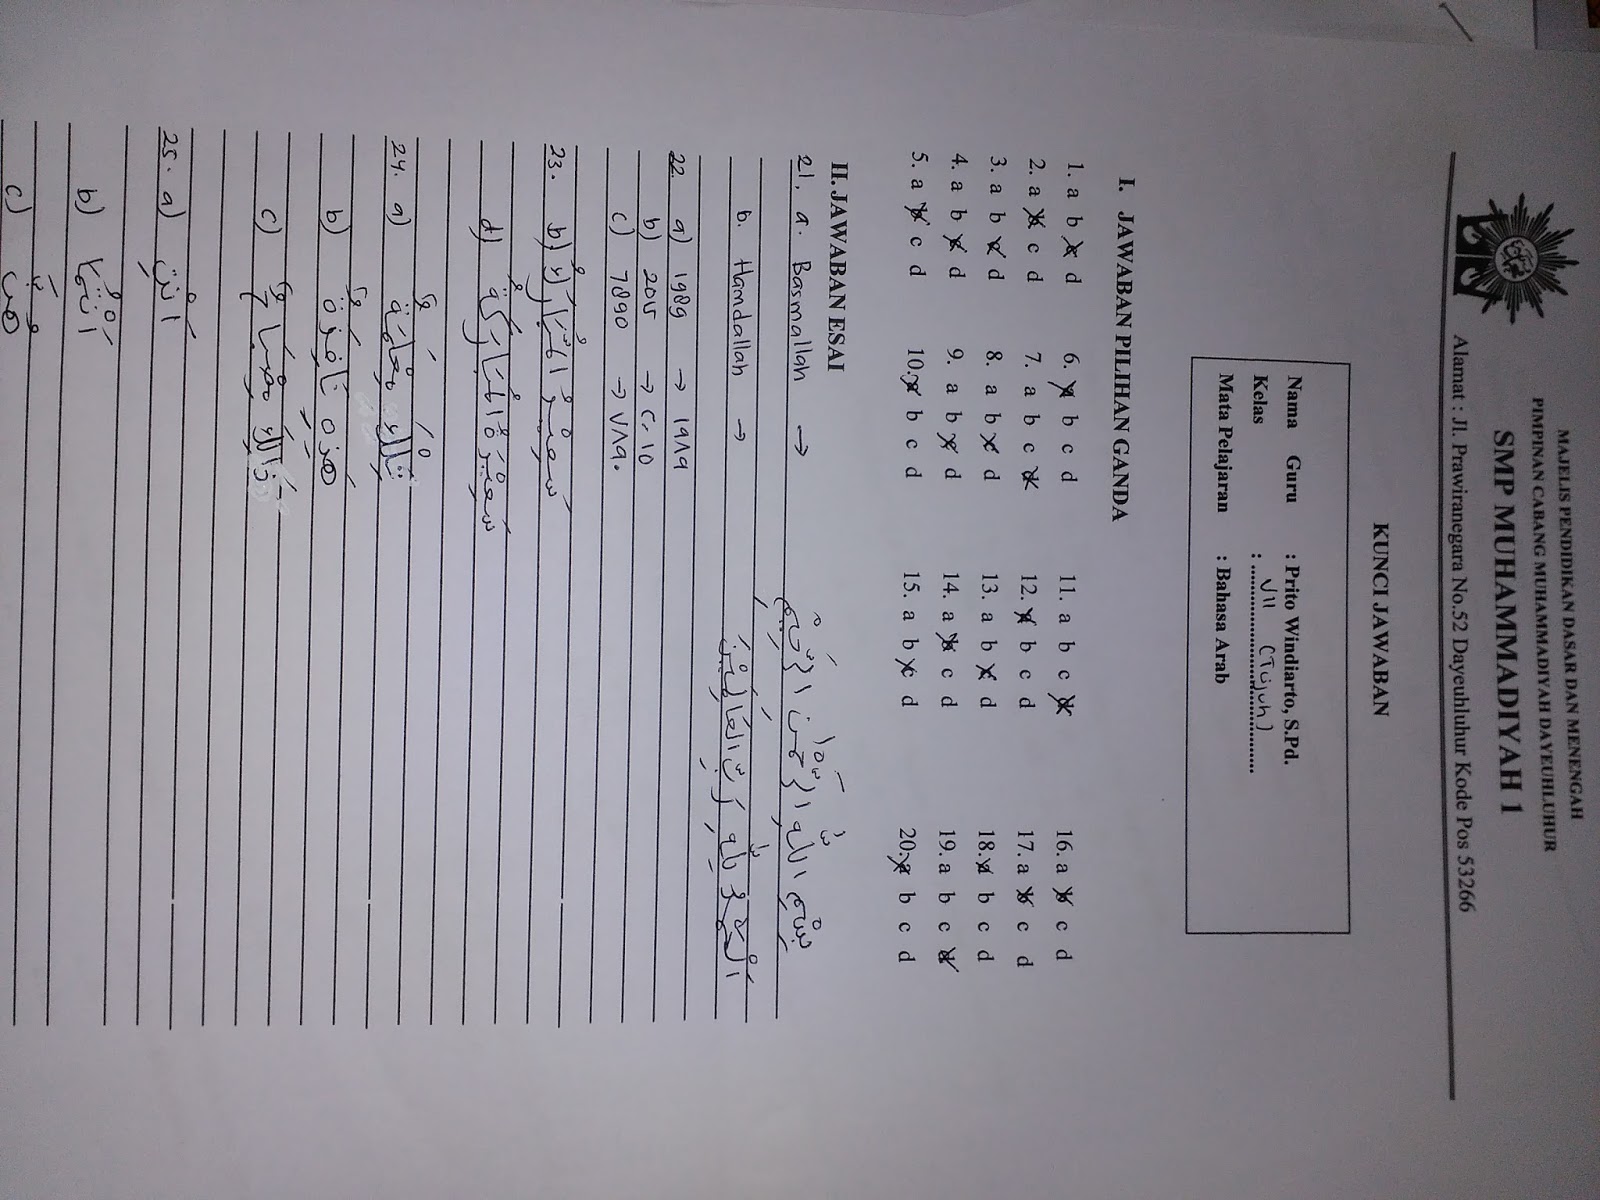 MAJELIS PENDIDIKAN DASAR DAN MENENGAH
PIMPINAN CABANG MUHAMMADIYAH DAYEUHLUHUR
SMP MUHAMMADIYAH 1
Alamat : Jl. Prawiranegara No.52 Dayeuhluhur Kode Pos 53266
KUNCI JAWABAN
Nama Guru : Prito Windiarto, S.Pd.
Kelas : VII (Tujuh)
Mata Pelajaran : Bahasa Arab
I. JAWABAN PILIHAN GANDA
1. a b c d 6. a b c d 11. a b c d 16. a b c d
2. a b c d 7. a b c d 12. a b c d 17. a b c d
3. a b c d 8. a b c d 13. a b c d 18. a b c d
4. a b c d 9. a b c d 14. a b c d 19. a b c d
5. a b c d 10. a b c d 15. a b c d 20. a b c d
II. JAWABAN ESAI
21. a. Basmallah → بِسْمِ اللهِ الرَّحْمٰنِ الرَّحِيْمِ
b. Hamdallah → اَلْحَمْدُ لِلهِ رَبِّ الْعَالَمِيْنَ
22. a) 1989 → ١٩٨٩
b) 2015 → ٢٠١٥
c) 7890 → ٧٨٩٠
23. b) سَعِيْدُ الْمُبَارَكُ
d) سَعِيْدَةُ الْمُبَارَكَةُ
24. a)
b) هٰذِهِ نَافِذَةٌ
c)
25. a) أَنْتِ
b) أَنْتُمَا
c) هُنَّ